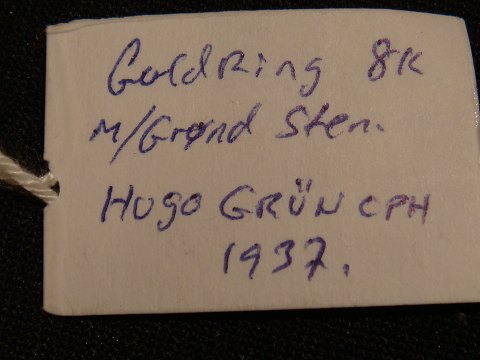 GuldRing 8K
M/Grønd Sten.
HUGO GRÜN CPH
1937.